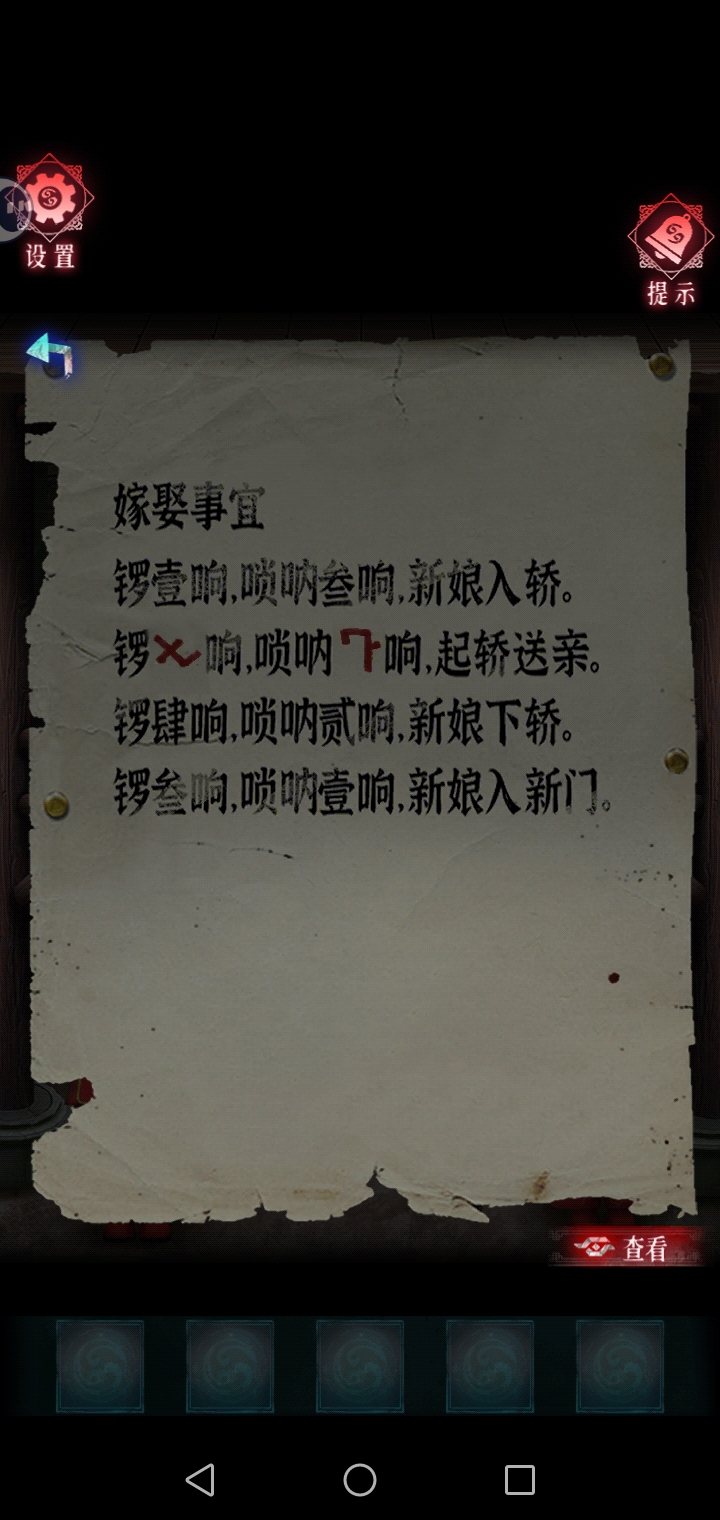 设置
提示
嫁娶事宜
锣壹响,唢呐叁响,新娘入轿。
锣响,唢呐响,起轿送亲。
锣肆响,唢呐贰响,新娘下轿。
锣叁响,唢呐壹响,新娘入新门。
查看